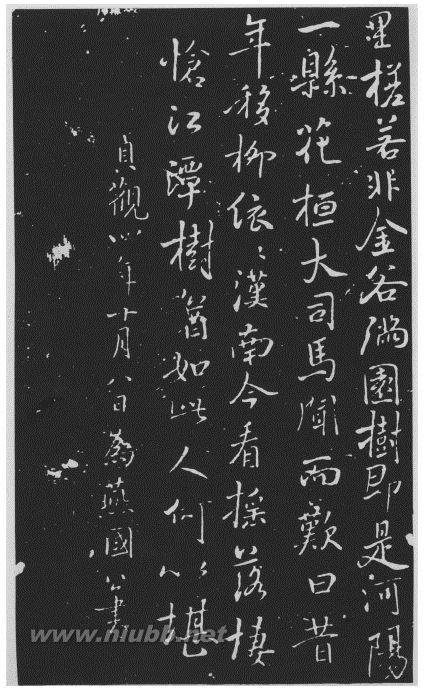 星槎若非金谷滿園樹即是河陽
一縣花桓大司馬聞而歎曰昔
年移柳依〻漢南今看搖落悽
愴江潭樹猶如此人何以堪
貞觀四年十月八日為燕國公書
www.niubb.net